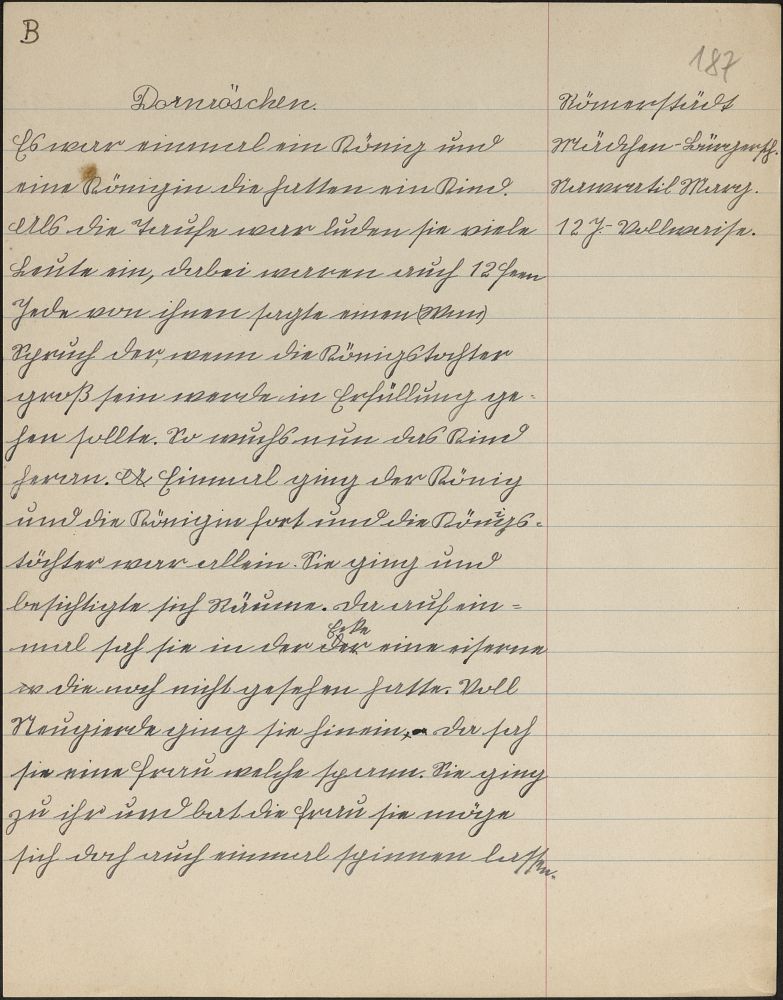 B
187
Dornröschen.
Es war einmal ein König und
eine Königin die hatten ein Kind.
Als die Taufe war luden sie viele
Leute ein, dabei waren auch 12 Feen
Jede von ihnen sagte einen (Wun)
Spruch der, wenn die Königstochter
groß sein werde in Erfüllung ge-
hen sollte. So wuchs nun das Kind
heran. A Einmal ging der König
und die Königin fort und die Königs-
töchter war allein. Sie ging und
besichtigte sich Räume. Da auf ein-
mal sah sie in der Ecke eine eiserne
die noch nicht gesehen hatte. Voll
Neugierde ging sie hinein, Da sah
sie eine Frau welche spann. Sie ging
zu ihr und bat die Frau sie möge
sich doch auch einmal spinnen lassen.
Römerstädt
Mädchen-Bürgersch.
Nawratil Marg.
12 J.- Vollwaise.